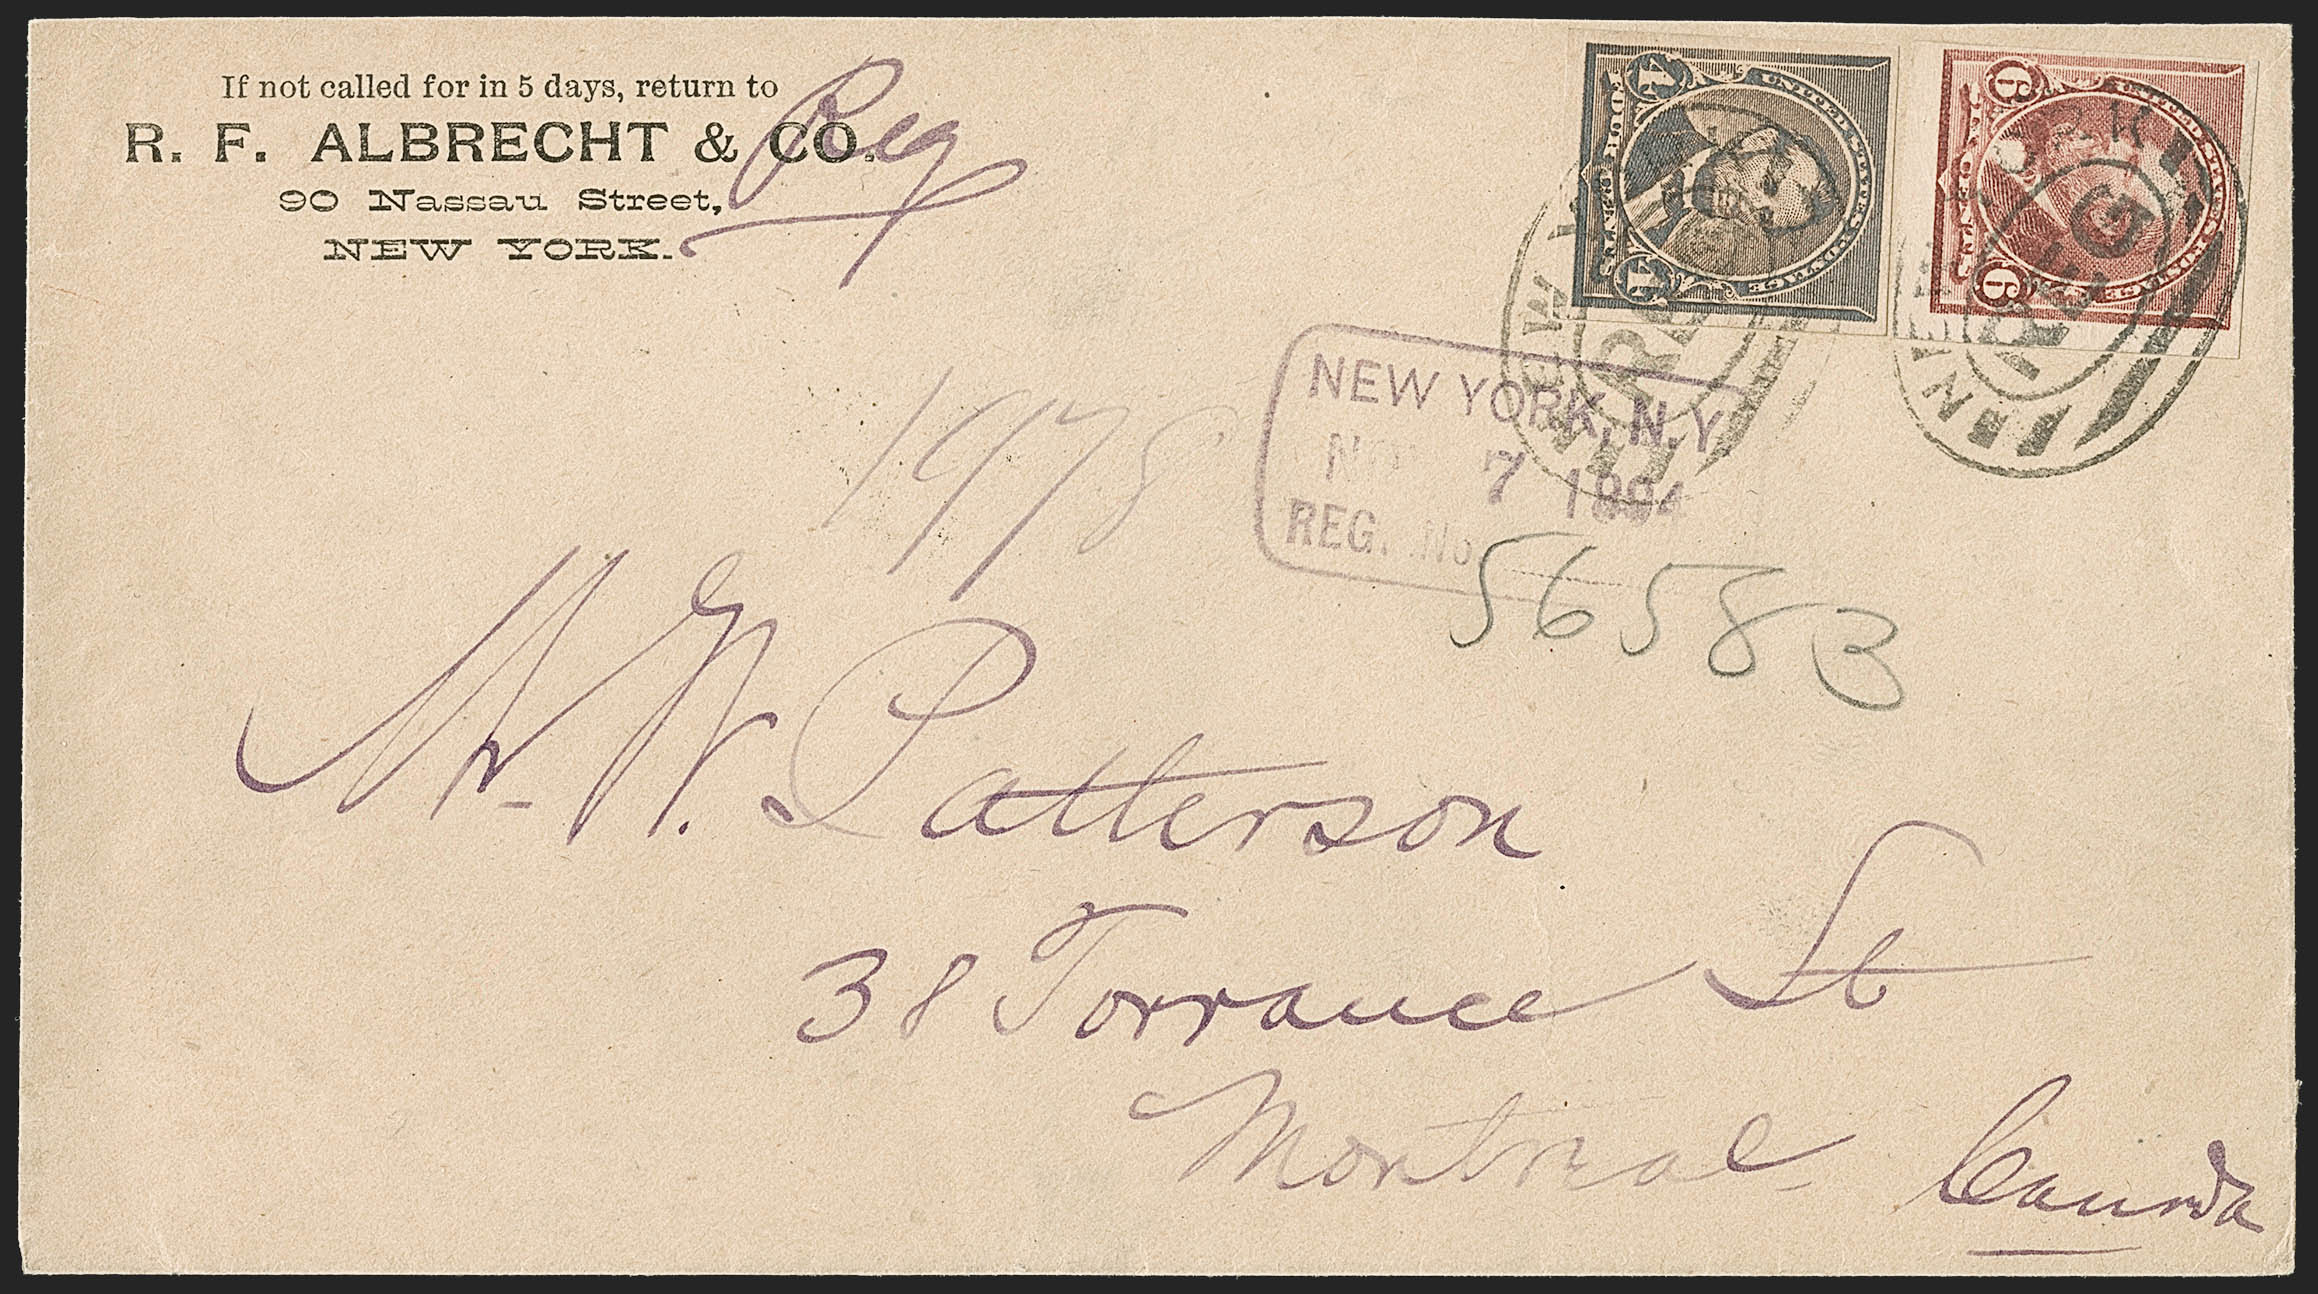 If not called for in 5 days, return to
R. F. ALBRECHT & CO.
90 Nassau Street,
NEW YORK.
Reg
4 4
UNITED STATES POSTAGE
6 6
UNITED STATES POSTAGE
NEW YORK
REG
NEW YORK
REG
NEW YORK, N.Y.
7 1894
REG. No
56583
1978
Mr W. Patterson
38 Torrance St
Montreal Canada